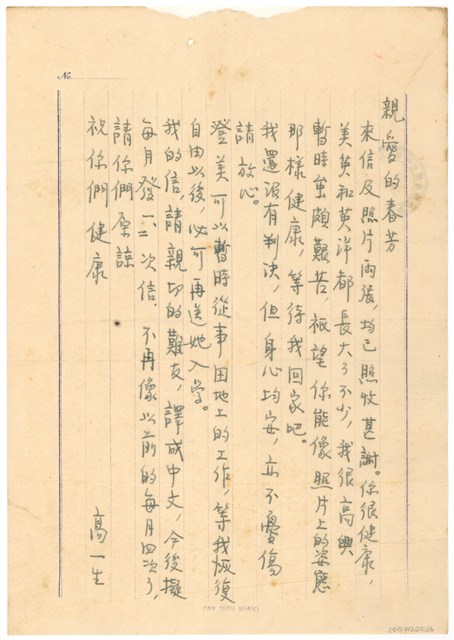 No.
親愛的春芳
來信及照片兩張，均已照收甚謝。你很健康，
美英和英洋都長大了不少，我很高興
暫時虽頗艱苦，祇望你能像照片上的姿態
那樣健康，等待我回家吧。
我還沒有判決，但身心均安，亦不憂傷
請放心。
澄美可以暫時從事田地上的工作，等我恢復
自由以後，必可再送她入学。
我的信請親切的難友，譯成中文，今後擬
每月發一二次信，不再像以前的每月四次了，
請你們原諒
祝你們健康
高一生